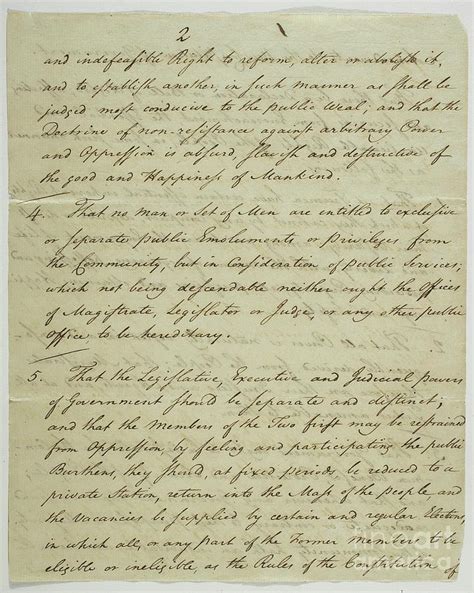 2
and indefeasible Right to reform, alter or abolish it,
and to establish another, in such manner as shall be
judged most conducive to the public Weal; and that the
Doctrine of non-resistance against arbitrary Power
and Oppression is absurd, slavish and destructive of
the good and Happiness of Mankind.
4. That no man or Set of Men are entitled to exclusive
or separate public Emoluments or privileges from
the Community, but in Consideration of public Services;
which not being descendable neither ought the Offices
of Magistrate, Legislator or Judge, or any other public
Office to be hereditary.
5. That the Legislative, Executive and Judicial powers
of Government should be separate and distinct;
and that the Members of the Two first may be restrained
from Oppression, by feeling and participating the public
Burthens, they should, at fixed periods, be reduced to a
private Station, return into the Mass of the people, and
the Vacancies be supplied by certain and regular Elections,
in which all, or any part of the Former members to be
eligible or ineligible, as the Rules of the Constitution of